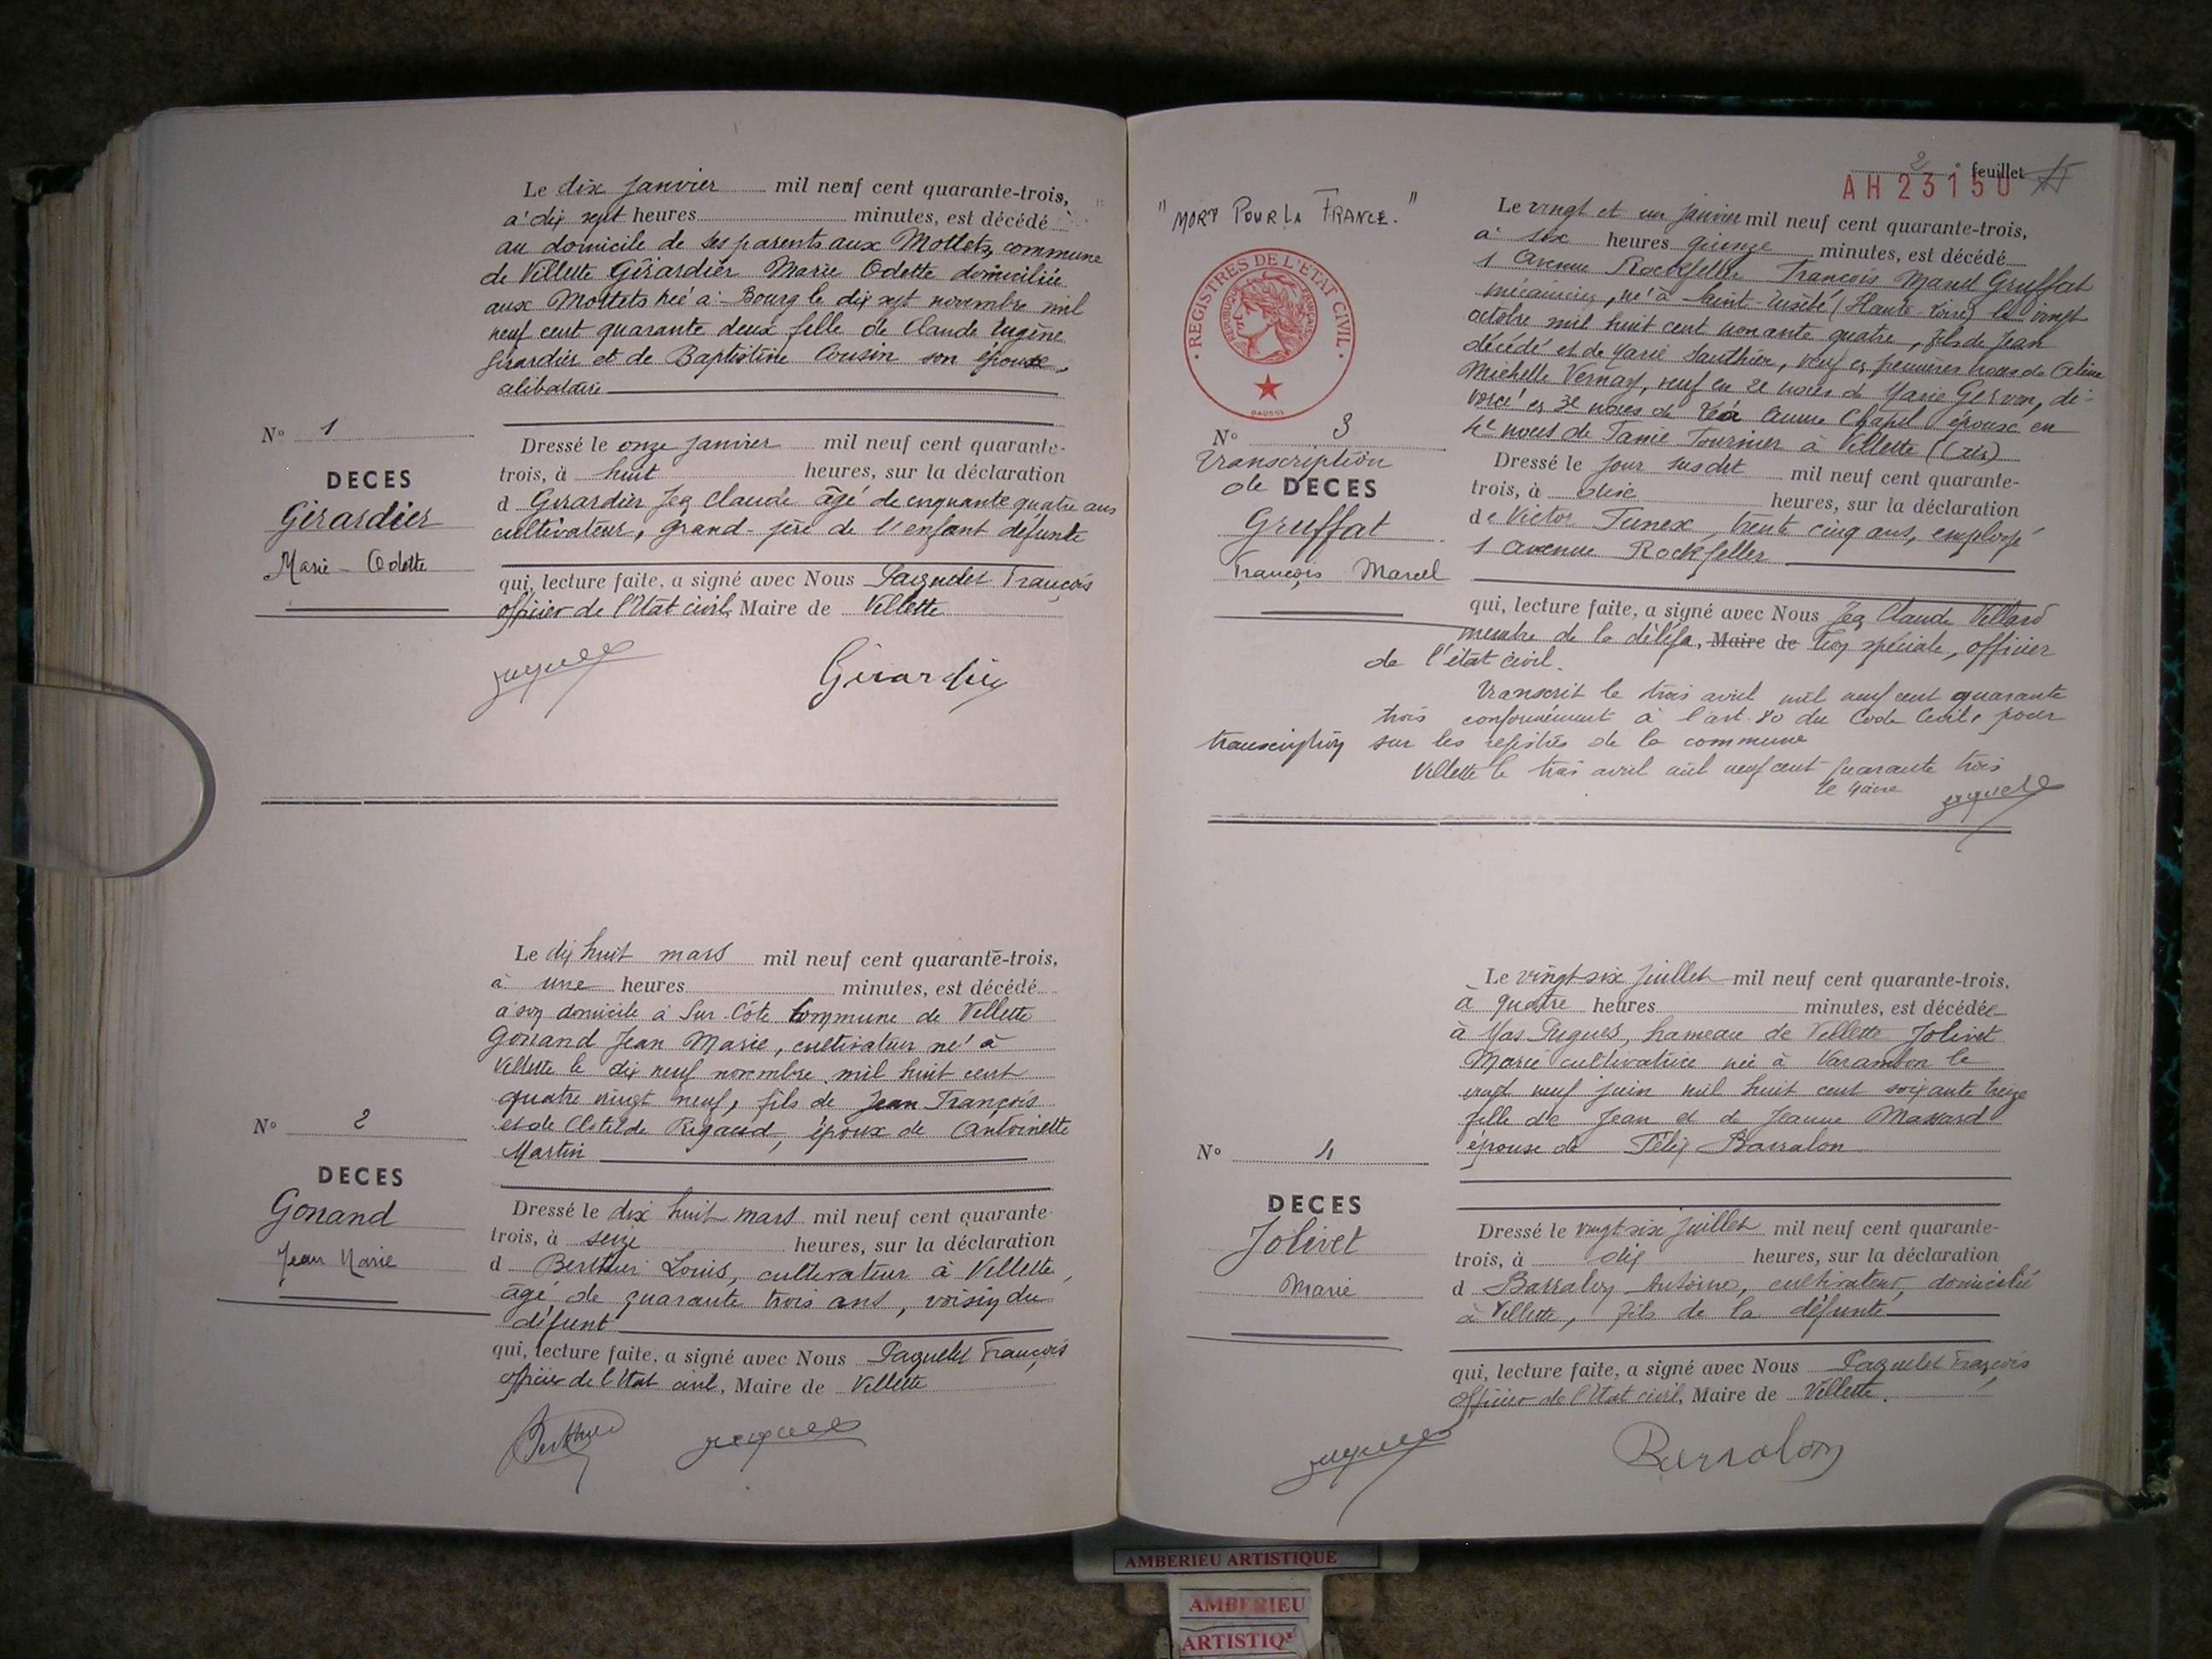 Le dix janvier mil neuf cent quarante-trois,
à dix sept heures minutes, est décédé
au domicile de ses parents aux Mottets, commune
de Villette Girardier Marie Odette domiciliée
aux Mottets née à Bourg le dix sept novembre mil
neuf cent quarante deux fille de Claude Eugène
Girardier et de Baptistine Cousin son épouse,
célibataire
N° 1
DECES
Girardier
Marie-Odette
Dressé le onze janvier mil neuf cent quarante-
trois, à huit heures, sur la déclaration
d Girardier Jean Claude âgé de cinquante quatre ans
cultivateur, grand-père de l'enfant défunte
qui, lecture faite, a signé avec Nous Paquelet François
officier de l'Etat civil, Maire de Villette
Girardier
Le dix huit mars mil neuf cent quarante-trois,
à une heures minutes, est décédé
à son domicile à Sur-Côte Commune de Villette
Gonand Jean Marie, cultivateur né à
Villette le dix neuf novembre mil huit cent
quatre vingt neuf, fils de Jean François
et de Clotilde Rigaud, époux de Antoinette
Martin
N° 2
DECES
Gonand
Jean Marie
Dressé le dix huit mars mil neuf cent quarante-
trois, à seize heures, sur la déclaration
d Louis, cultivateur à Villette,
âgé de quarante trois ans, voisin du
défunt
qui, lecture faite, a signé avec Nous Paquelet François
officier de l'Etat civil, Maire de Villette
2 e feuillet
AH 23150
"MORT POUR LA FRANCE."
REGISTRES DE L'ETAT CIVIL
REPUBLIQUE FRANÇAISE
DAUSSY
Le vingt et un janvier mil neuf cent quarante-trois,
à six heures quinze minutes, est décédé
1 Avenue Rockfeller François Marcel Gruffat
mécanicien, né à Saint- (Haute-) le vingt
octobre mil huit cent nonante quatre, fils de Jean
décédé et de Marie Sauthier, veuf en premières noces de Céline
Michelle Vernay, veuf en 2e noces de Marie Gervon, di-
vorcé en 3e noces de Anna Chapel époux en
4e noces de Fanie Tournier à Villette (Ain)
N° 3
Transcription
de DECES
Gruffat
François Marcel
Dressé le jour susdit mil neuf cent quarante-
trois, à dix heures, sur la déclaration
de Victor Tunex, trente cinq ans, employé
1 avenue Rockfeller
qui, lecture faite, a signé avec Nous Jean Claude Villard
membre de la déléga, Maire de tion spéciale, officier
de l'état civil.
Transcrit le trois avril mil neuf cent quarante
trois conformément à l'art. 80 du Code Civil, pour
transcription sur les registres de la commune
Villette le trois avril mil neuf cent quarante trois
Le Maire
Le vingt-six juillet mil neuf cent quarante-trois,
à quatre heures minutes, est décédée
à Mas Pugues, hameau de Villette Jolivet
Marie cultivatrice née à Varambon le
vingt neuf juin mil huit cent soixante treize
fille de Jean et de Jeanne Massard
épouse de Félix Barralon
N° 4
DECES
Jolivet
Marie
Dressé le vingt-six juillet mil neuf cent quarante-
trois, à dix heures, sur la déclaration
d Barralon Antoine, cultivateur, domicilié
à Villette, fils de la défunte
qui, lecture faite, a signé avec Nous Paquelet François
officier de l'Etat civil, Maire de Villette.
Barralon
AMBERIEU ARTISTIQUE
AMBERIEU
ARTISTIQ